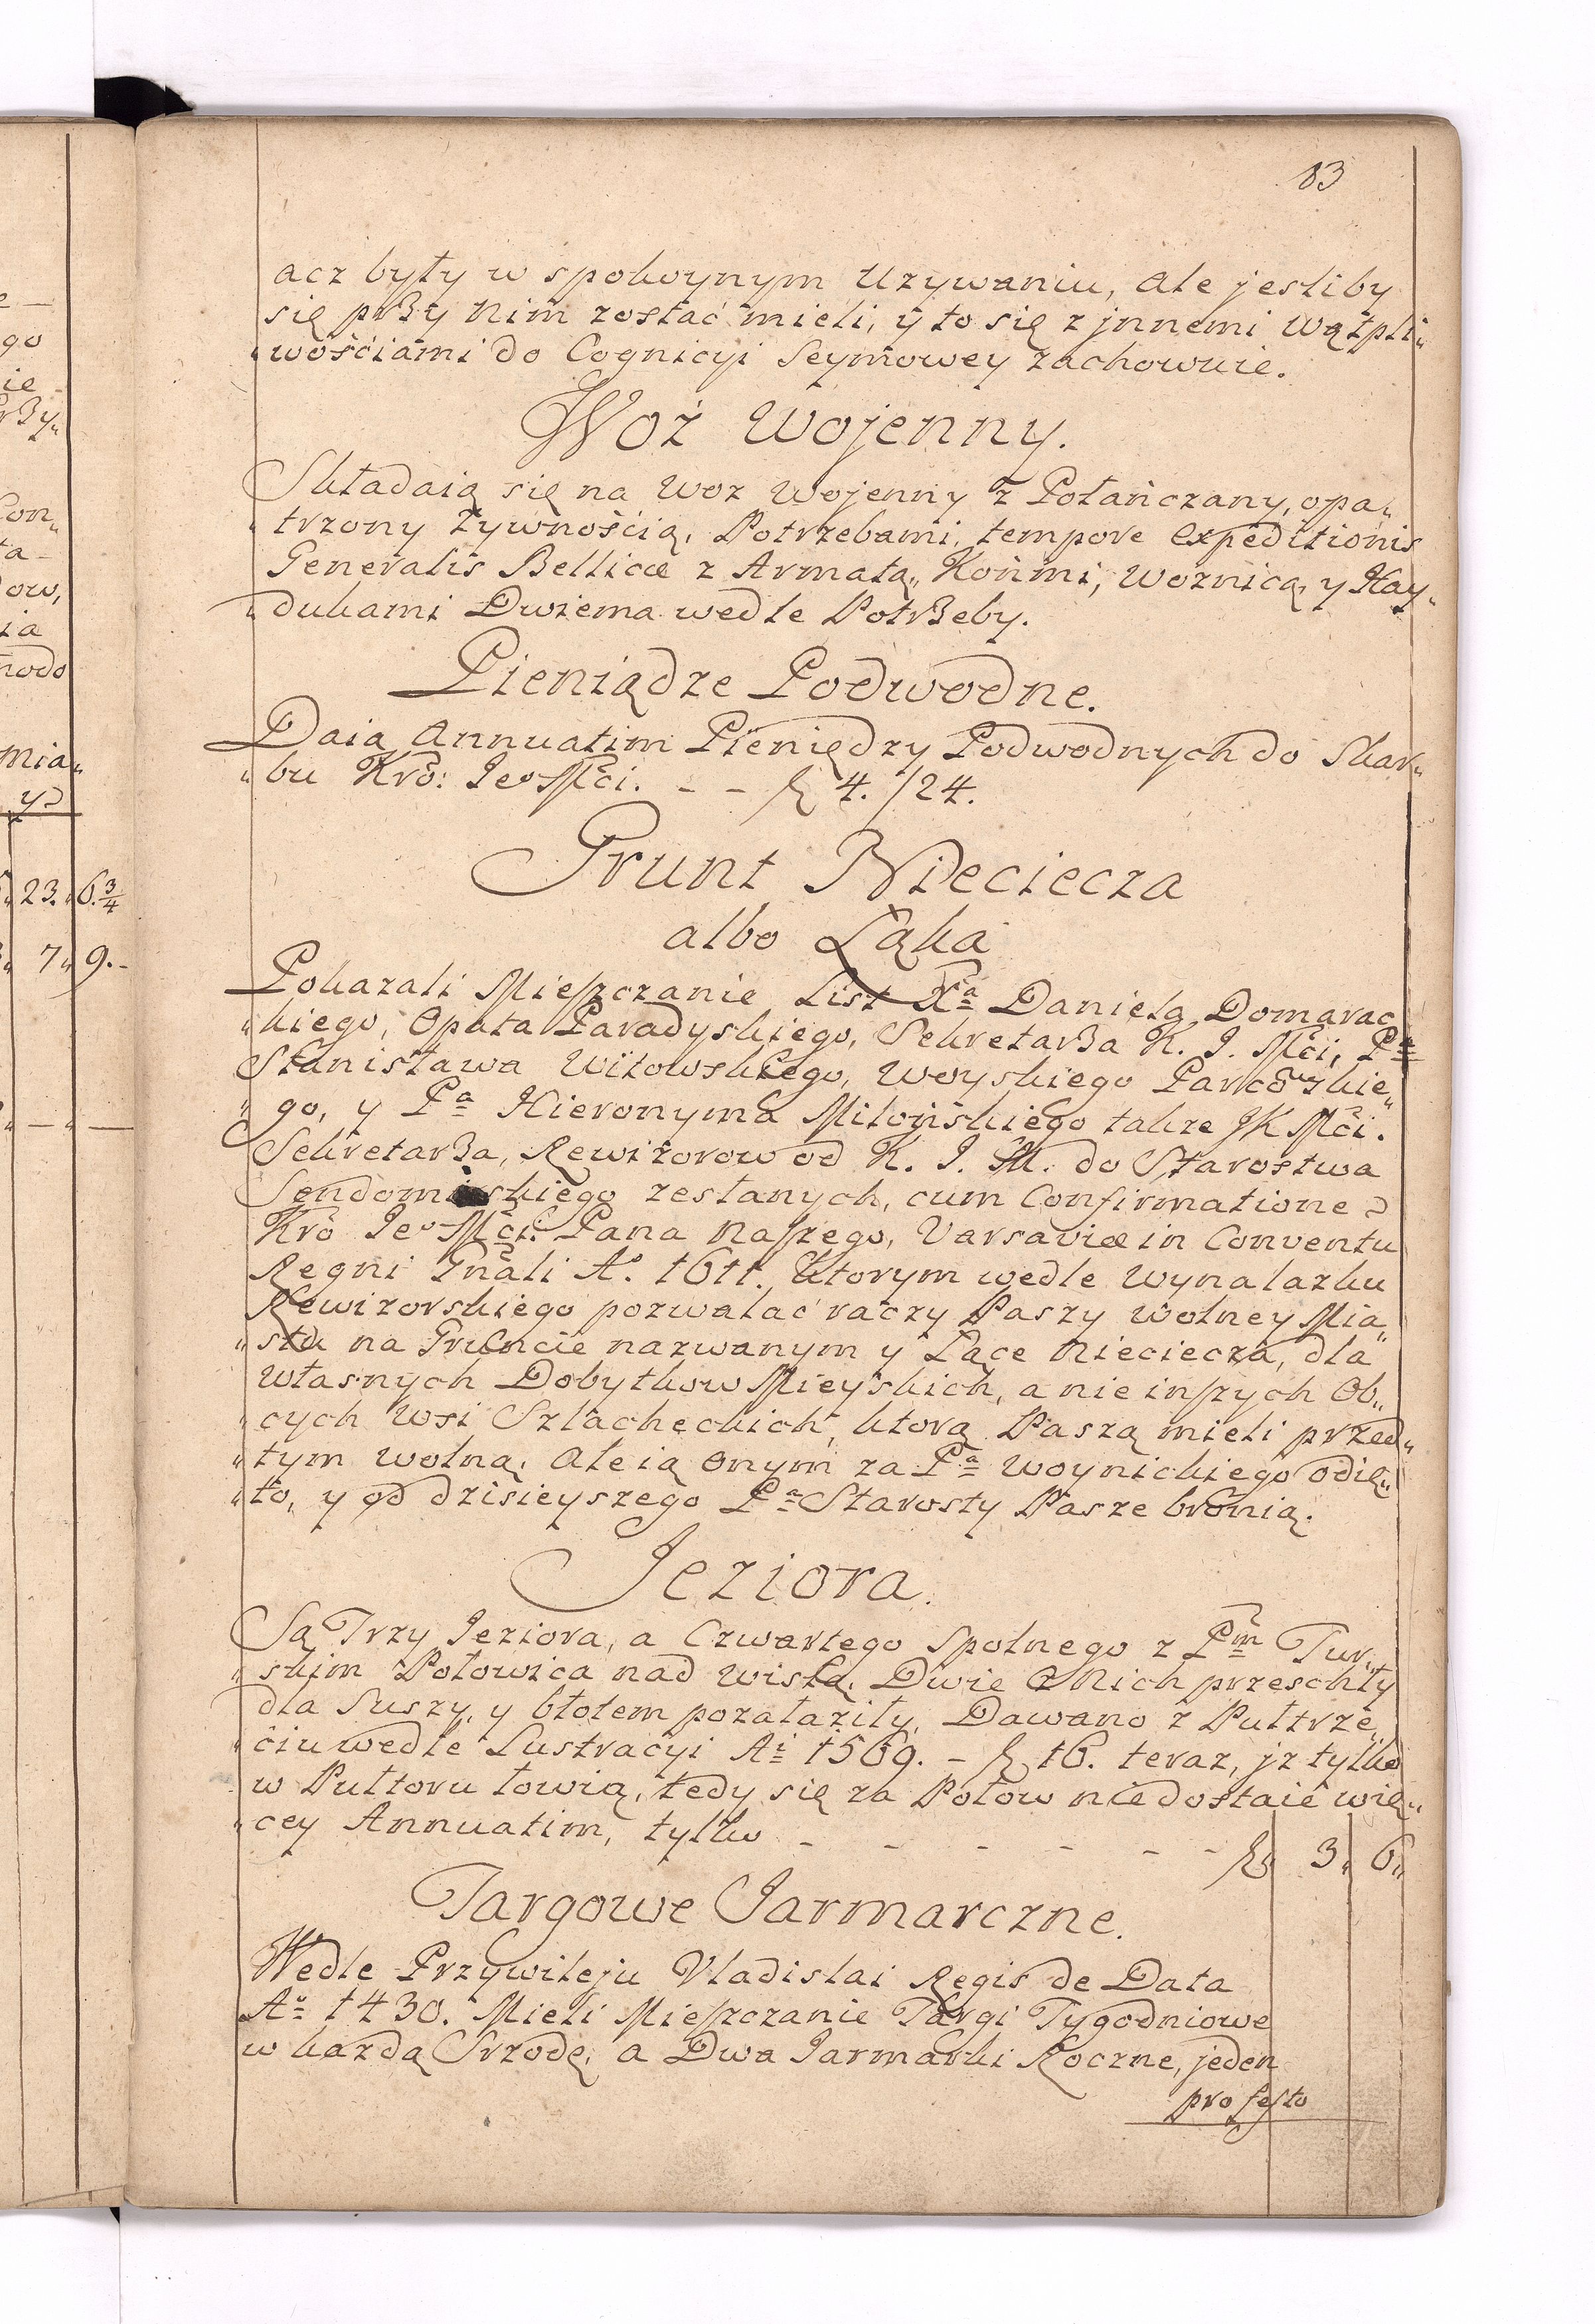 83
acz były w spokoynym Uzywaniu, ale jesliby
się przy nim zostać mieli, y to się z jnnemi Wątpli„
„wościami do Cognicyi Seymowey zachowuie.
Woz Wojenny.
Składaią się na Woz Wojenny z Połańczany, opa„
„trzony Zywnością, Potrzebami, tempore expeditionis
Generalis Bellicæ z Armatą, Końmi, Woznicą, y Hay„
„dukami Dwiema wedle Potrzeby.
Pieniądze Podwodne.
Daią Annuatim Pieniędzy Podwodnych do Skar„
„bu Kró: Jeo Mći. - - f 4. /24.
Grunt Nieciecza
albo Łąka
Pokazali Mieszczanie List Xa Daniela Domarac„
„kiego, Opata Paradyskiego, Sekretarza K. J. Mći, Pa
Stanisława Witowskiego, Woyskiego Parczowskie„
„go, y Pa Hieronyma Milońskiego takze JK Mći.
Sekretarza, Rewizorow od K. J. M. do Starostwa
Sendomirskiego zesłanych, cum Confirmatione
Kró Jeo Mći: Pana Naszego, Varsaviæ in Conventu
Regni Gnali Ao. 1611. Ktorym wedle Wynalazku
Rewizorskiego pozwalać raczy Paszy wolney Mia„
„stu na Gruncie nazwanym y Łące Nieciecza, dla
Własnych Dobytkow Mieyskich, a nie inszych Ob„
„cych Wsi Szlacheckich, ktorą Paszą mieli przed„
„tym wolną. Ale ią onym za Pa Woynickiego odię„
„to, y od dzisieyszego Pa Starosty Pasze bronią.
Jeziora.
Są Trzy Jeziora, a Czwartego Spolnego z Pm Tur„
„skim Połowica nad Wisłą. Dwie z Nich przeschły
dla Suszy, y błotem pozałaziły. Dawano z Pułtrze„
„ciu wedle Lustracyi Ai 1569. - f 16. teraz, jz tylko
w Pułtoru łowią, tedy się za Połow nie dostaie wię„
„cey Annuatim, tylko - - - - - - f„ 3„ 6„
Targowe Jarmarczne.
Wedle Przywileju Vladislai Regis de Data
Ao 1430. Mieli Mieszczanie Targi Tygodniowe
w kazdą Srzodę, a Dwa Jarmarki Roczne, jeden
pro festo